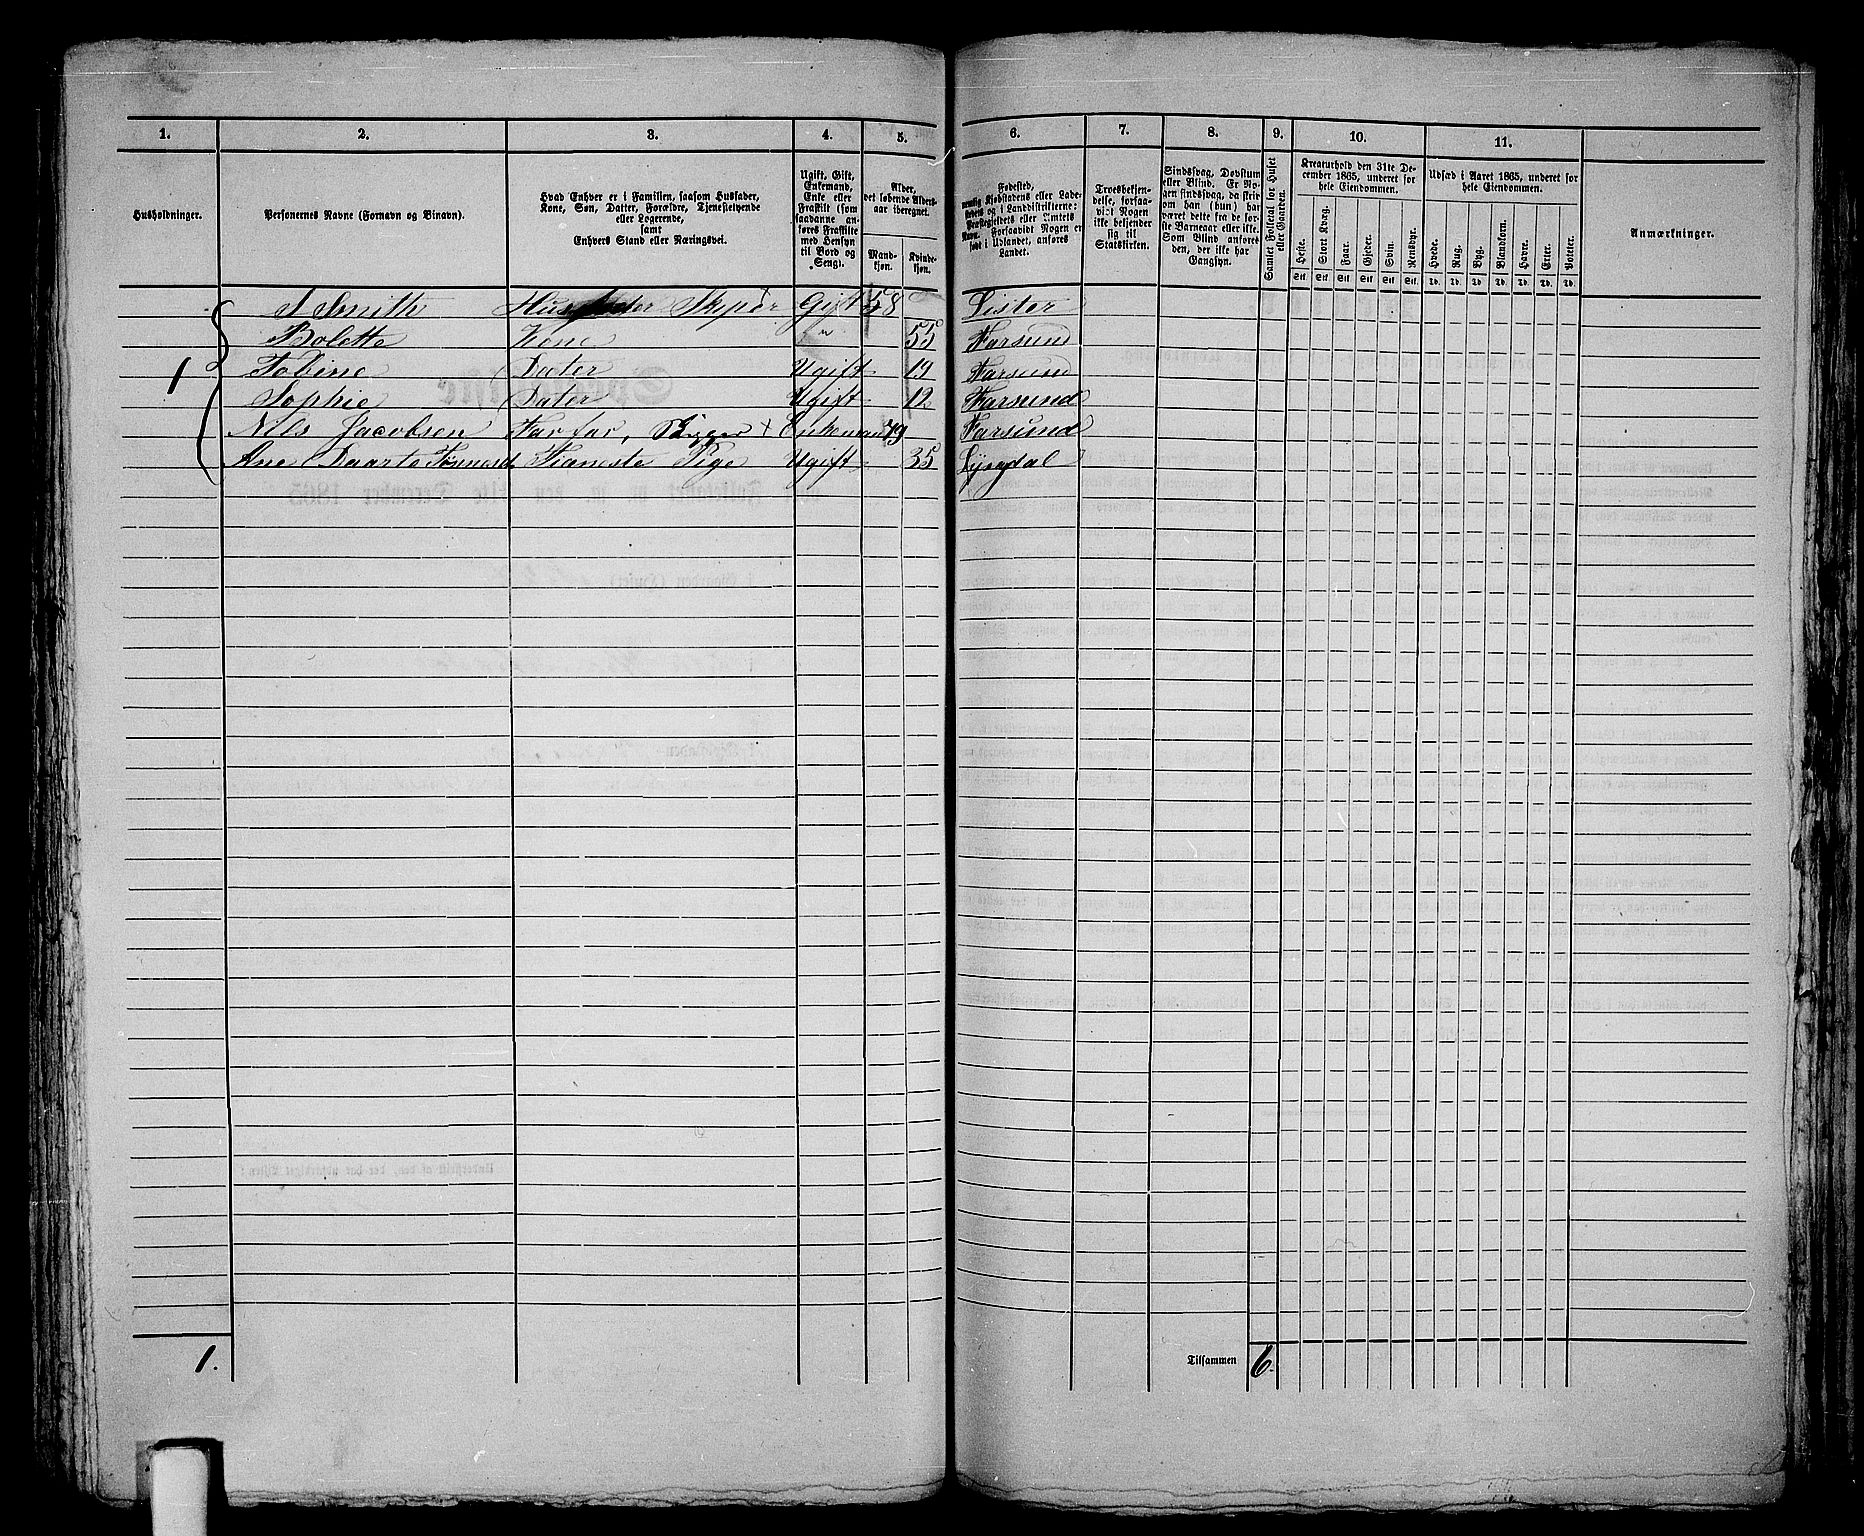 1. 2. 3. 4. 5. 6. 7. 8. 9. 10. 11.
Husholdninger.
Personernes Navne (Fornavn og Binavn).
Hvad Enhver er i Familien, saasom Husfader,
Kone, Søn, Datter, Forældre, Tjenestetyende
eller Logerende,
samt
Enhvers Stand eller Næringsvei.
Ugift, Gift,
Enkemand,
Enke eller
Fraskilt (som
saadanne an-
føres Fraskilte
med Hensyn
til Bord og
Seng).
Alder,
det løbende Alders-
aar iberegnet.
Mand-
kjøn.
Kvinde-
kjøn.
Fødested,
nemlig Kjøbstadens eller Lade-
stedets og i Landdistrikterne:
Præstegjeldets eller Amtets
Navn. Forsaavidt Nogen er
født i Udlandet, anføres
Landet.
Troesbekjen-
delse, forsaa-
vidt Nogen
ikke bekjender
sig til
Statskirken.
Sindssvag, Døvstum
eller Blind. Er No-
gen sindssvag, da skriv
om han (hun) har
været dette fra de før-
ste Barneaar eller ikke.
Som Blind anføres
den, der ikke har
Gangsyn.
Samlet Folketal for Huset
eller Gaarden.
Kreaturhold den 31te De-
cember 1865, underet for
hele Eiendommen.
Heste. Stort Kvæg. Faar. Gjeder. Svin. Rensdyr.
Stk. Stk. Stk. Stk. Stk. Stk.
Udsæd i Aaret 1865, underet for
hele Eiendommen.
Hvede. Rug. Byg. Blandkorn. Havre. Erter. Poteter.
Td. Td. Td. Td. Td. Td. Td.
Anmærkninger.
S Smith Husfader Skpér Gift 58 Lister
Bolette Kone 55 Farsund
1 Tobine Dater Ugift 19 Farsund
Sophie Dater Ugift 12 Farsund
Nils Jacobsen Farfar, Bygger Enkemand 79 Farsund
Ane Tianeste Pige Ugift 35 Lyngdal
1. Tilsammen 6.